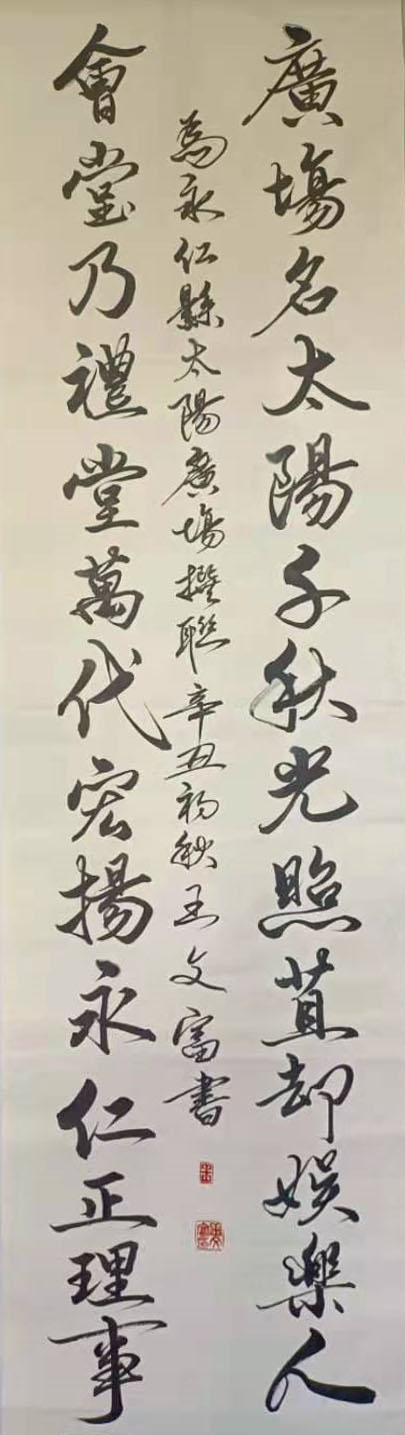 廣塲名太陽千秋光照苴却娱樂人
為永仁縣太陽廣塲撰聯辛丑初秋王文富書
會堂乃禮堂萬代宏揚永仁正理事